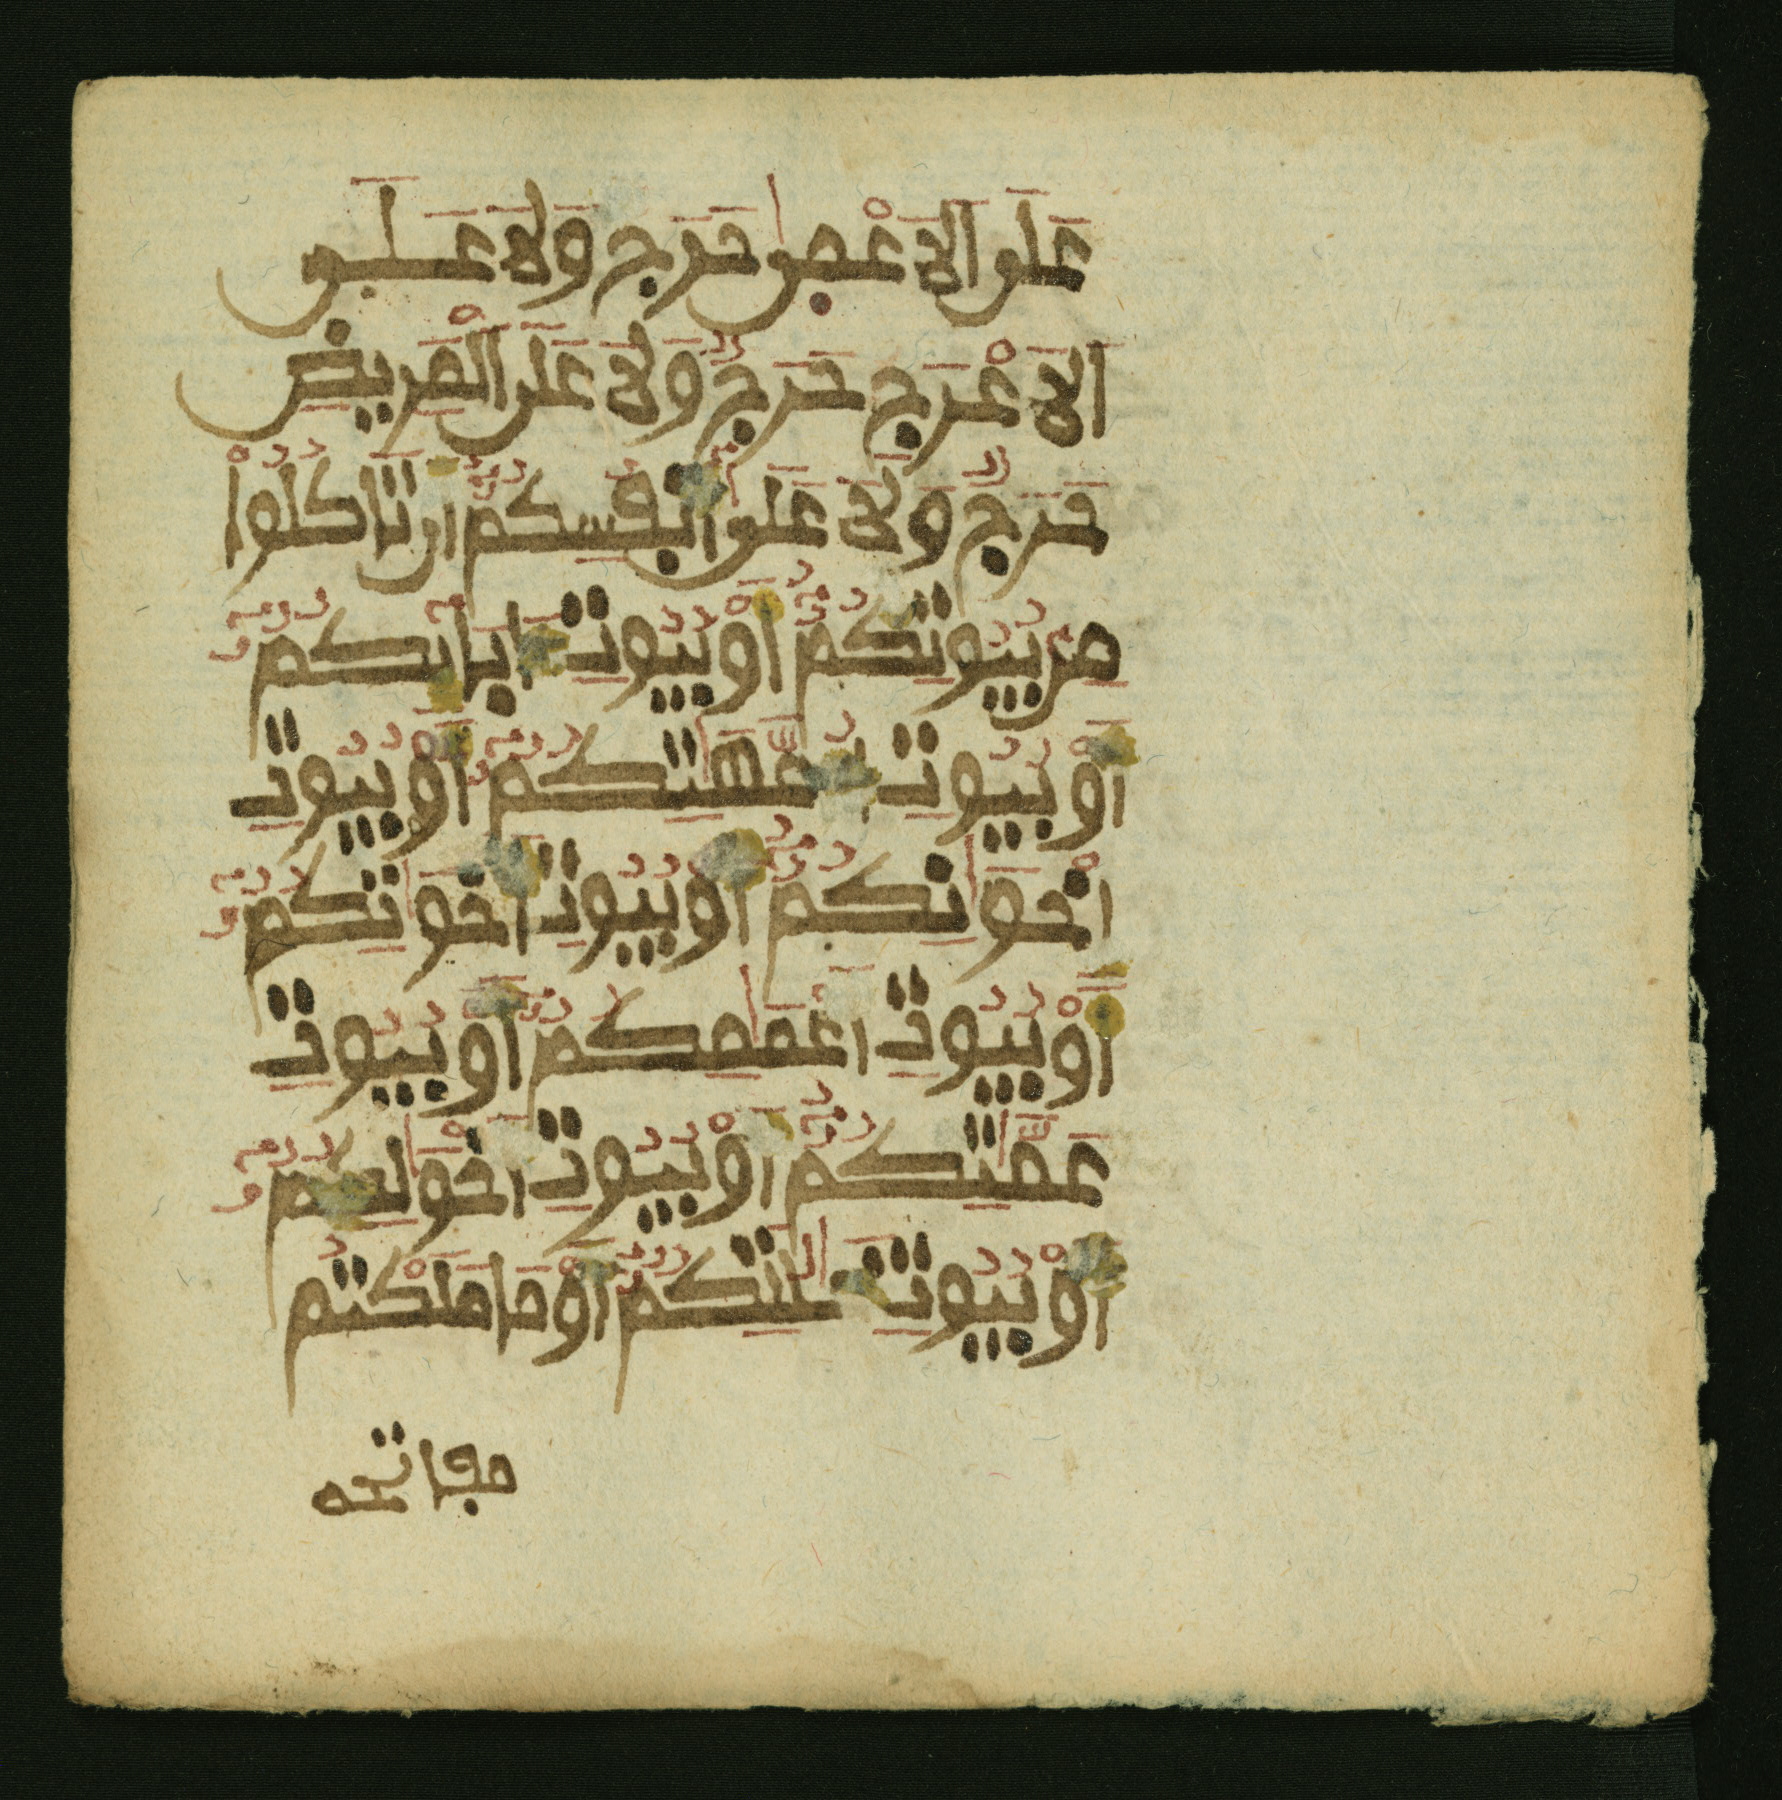 عَلَى الَاعْمٜىٰ حَرَج وَلَا عَلَى
الَاعْرَج حَرَجٌ وَلَا عَلَى الْمَرِيضِ
حَرَجٌ وَلَا عَلَىٰ أَنفُسِكُمُۥ أَن تَاكُلُواْ
مِنۢ بُيُوتِكُمُۥ أَوْ بُيُوتِ ءَابَآئِكُمُۥ
أَوْ بُيُوتِ أُمَّهَٰتِكُمُۥ أَوْ بُيُوتِ
إِخْوَٰنِكُمُۥ أَوْ بُيُوتِ أَخَوَٰتِكُمُۥ
أَوْ بُيُوتِ أَعْمَٰمِكُمُۥ أَوْ بُيُوتِ
عَمَّٰتِكُمُۥ أَوْ بُيُوتِ أَخْوَٰلِكُمُۥ
أَوْ بُيُوتِ خَٰلَٰتِكُمُۥ أَوْ مَا مَلَكْتُم
مفاتحه